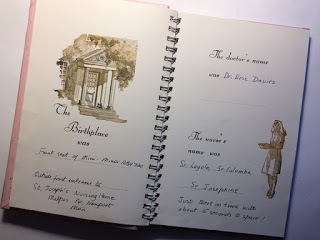 The
Birthplace
was
Front seat of Mini - Minor
Outside front entrance to
St. Joseph's Nursing Home
Malpas Nr Newport
Mon
The doctor's name
was Dr. Davies
The nurse's
name was
Sr. Loyola, Sr. Columba
Sr. Josephine
Just there on time with
about 5 seconds to spare!